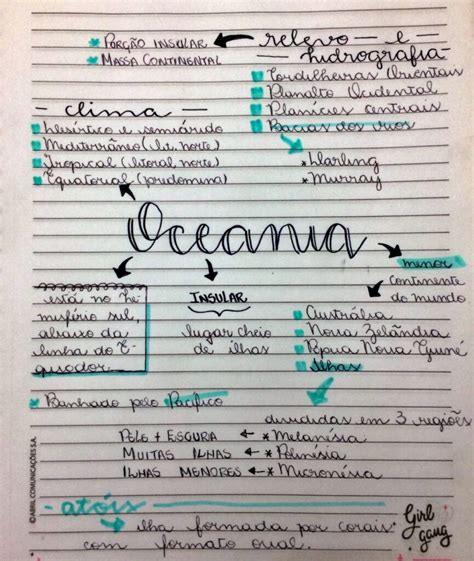 Porção Insular
Massa Continental
relevo e
hidrografia
Cordilheiras Orientais
Planalto Ocidental
Planícies centrais
Bacias dos rios
* Darling
* Murray
- clima -
Desértico e semiárido
Mediterrâneo (lit. norte)
Tropical (litoral norte)
Equatorial (predomina)
Oceania
menor
continente
do mundo
está no he-
misfério sul,
abaixo da
linha do E-
quador.
Insular
lugar cheio
de ilhas
Austrália
Nova Zelândia
Papua Nova Guiné
Ilhas
Banhado pelo Pacífico
divididas em 3 regiões
Pele + escura ← * Melanésia
Muitas ilhas ← * Polinésia
Ilhas menores ← * Micronésia
- atóis -
ilha formada por corais
com formato oval.
Girl
gang
©ABRIL COMUNICAÇÕES S.A.